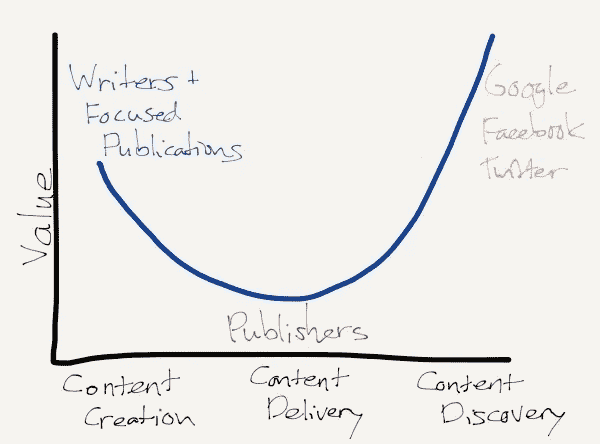 Writers +
Focused
Publications
Google
Facebook
Twitter
Value
Publishers
Content
Creation
Content
Delivery
Content
Discovery